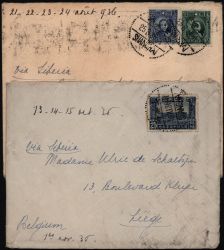 21_22_23_24 août 936
via Siberia
13_14_15 oct. 35
via Siberia
Madame Ulric de Schaetzen
13, Boulevard Kleyer
Liège
Belgium
1er nov. 35